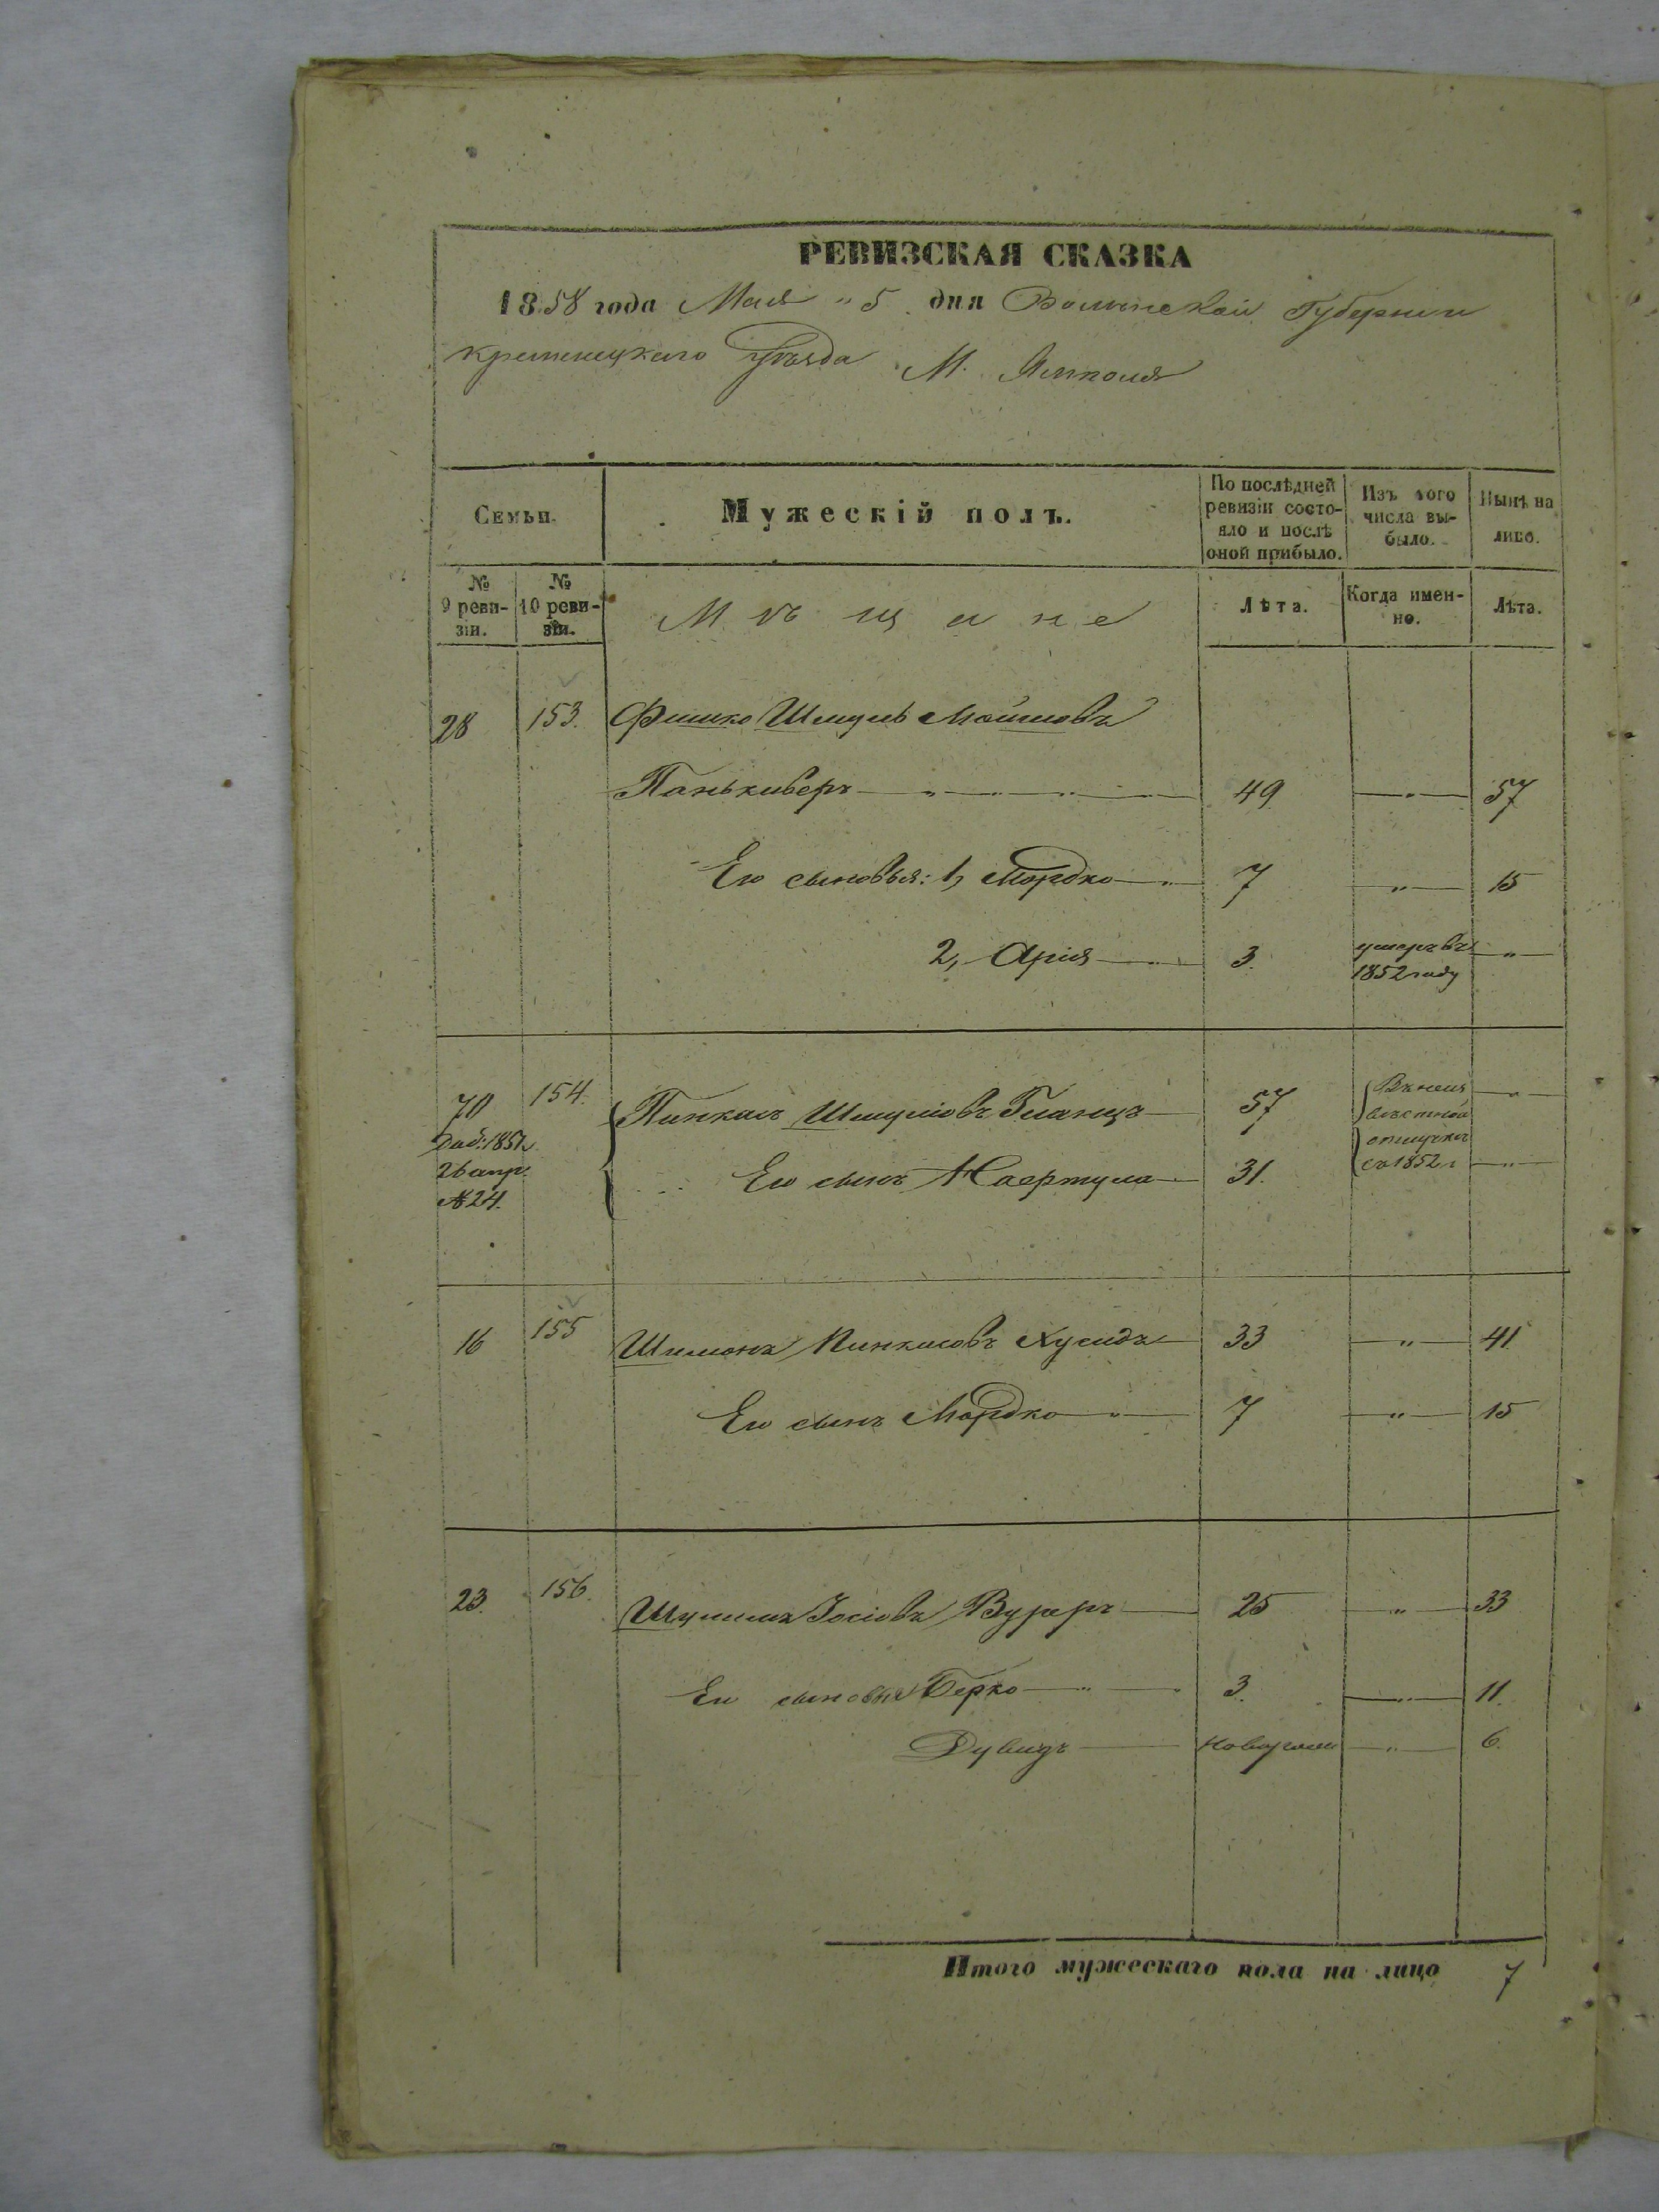 РЕВИЗСКАЯ СКАЗКА
1858 года Мая "5 дня Волынской Губернии
Кременецкаго Уѣзда М. Ямполя
Семьи.
Мужескій полъ.
По послѣдней ревизіи состояло и послѣ оной прибыло.
Изъ того числа выбыло.
Нынѣ на лицо.
№ 9 ревизіи.
№ 10 ревизіи.
Мѣщане
Лѣта.
Когда именно.
Лѣта.
28 153. Фишко Шмуль Мошковъ
49 " 57
Его сыновья: 1, Мордко 7 " 15
2, Арія 3. умеръ въ 1852 году "
70 154. Пинкасъ Шмуліовъ Гланцъ 57 Въ неизвѣстной отлучкѣ съ 1852 г "
Доб: 1851
26 апр.
№ 24.
Его сынъ 31. "
16 155 Шимонъ Пинкасовъ Хусидъ 33 " 41
Его сынъ Мордко 7 " 15
23. 156. Іосіовъ 25 " 33
Его сыновья Берко " 3. " 11.
Дувидъ " 6.
Итого мужескаго пола на лицо 7